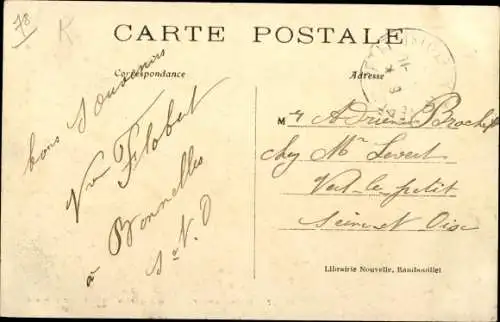 78
K
CARTE POSTALE
Correspondance
Adresse
bons Souvenirs
Vve Flobert
à Bonnelles
S et O
Mr Adrien Brochet
chez Mr Levert
Vert le petit
Seine et Oise
Librairie Nouvelle, Rambouillet